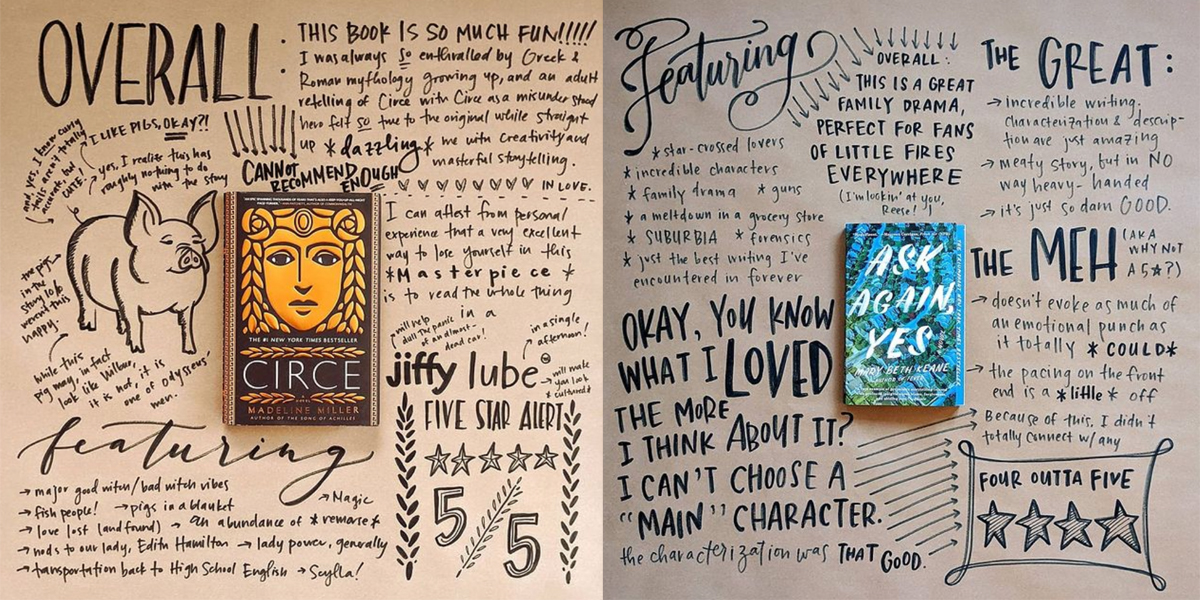 OVERALL:
THIS BOOK IS SO MUCH FUN!!!!!
I was always so enthralled by Greek &
Roman mythology growing up, and an adult
retelling of Circe with Circe as a misunderstood
hero felt so true to the original while straight
up *dazzling* me with creativity and
masterful storytelling.
I LIKE PIGS, OKAY?!
yes, I realize this has
roughly nothing to do
with the story
and yes, I know curly
tails aren't totally
accurate, but
CUTE!
CANNOT
RECOMMEND
ENOUGH
IN LOVE.
I can attest from personal
experience that a very excellent
way to lose yourself in this
*Masterpiece*
is to read the whole thing
in a
jiffy lube
will help
dull the panic
of an almost-
dead car!
in a single
afternoon!
will make
you look
*cultured*
the pigs
in the
story 10/10
weren't this
happy.
while this
pig may, in fact,
look like Wilbur,
it is not, it is
one of odysseus'
men.
THE #1 NEW YORK TIMES BESTSELLER
CIRCE
A NOVEL
MADELINE MILLER
AUTHOR OF THE SONG OF ACHILLES
FIVE STAR ALERT
5/5
featuring
→ major good witch/bad witch vibes
→ fish people! → pigs in a blanket
→ Magic
→ love lost (and found) → an abundance of *remorse*
→ nods to our lady, Edith Hamilton → lady power, generally
→ transportation back to High School English → Scylla!
Featuring
* star-crossed lovers
* incredible characters
* family drama * guns
* a meltdown in a grocery store
* SUBURBIA * forensics
* just the best writing I've
encountered in forever
OVERALL:
THIS IS A GREAT
FAMILY DRAMA,
PERFECT FOR FANS
OF LITTLE FIRES
EVERYWHERE
(I'm lookin' at you,
Reese!)
THE GREAT:
→ incredible writing.
characterization & descrip-
tion are just amazing
→ meaty story, but in NO
way heavy-handed
→ it's just so damn GOOD.
THE MEH (AKA
WHY NOT
A 5★?)
→ doesn't evoke as much of
an emotional punch as
it totally *COULD*
→ the pacing on the front
end is a *little* off
Because of this, I didn't
totally connect w/ any
ASK
AGAIN,
YES
MARY BETH KEANE
OKAY, YOU KNOW
WHAT I LOVED
THE MORE
I THINK ABOUT IT?
I CAN'T CHOOSE A
"MAIN" CHARACTER.
the characterization was THAT GOOD.
FOUR OUTTA FIVE